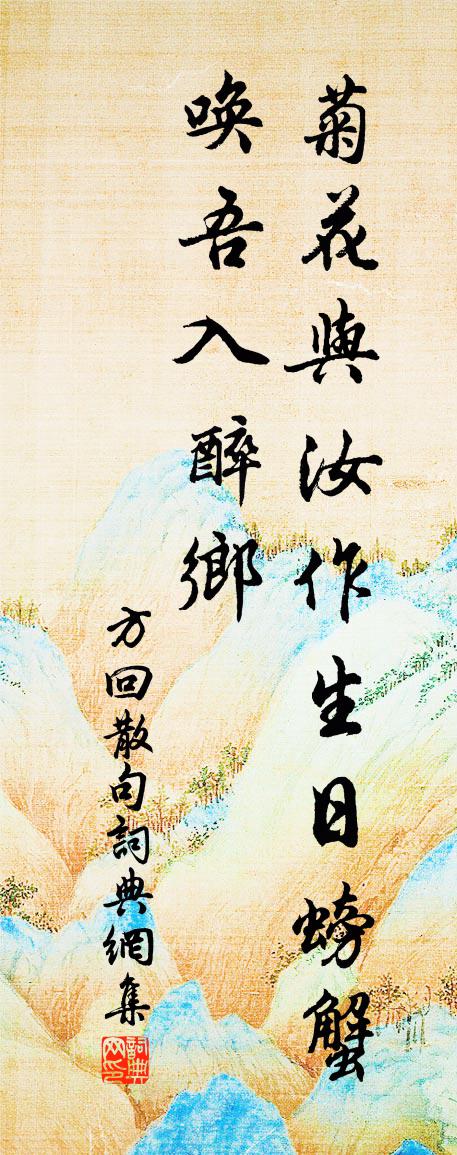 菊花與汝作生日螃蟹
喚吾入醉鄉
方回散句詞典網集
詞典
网印